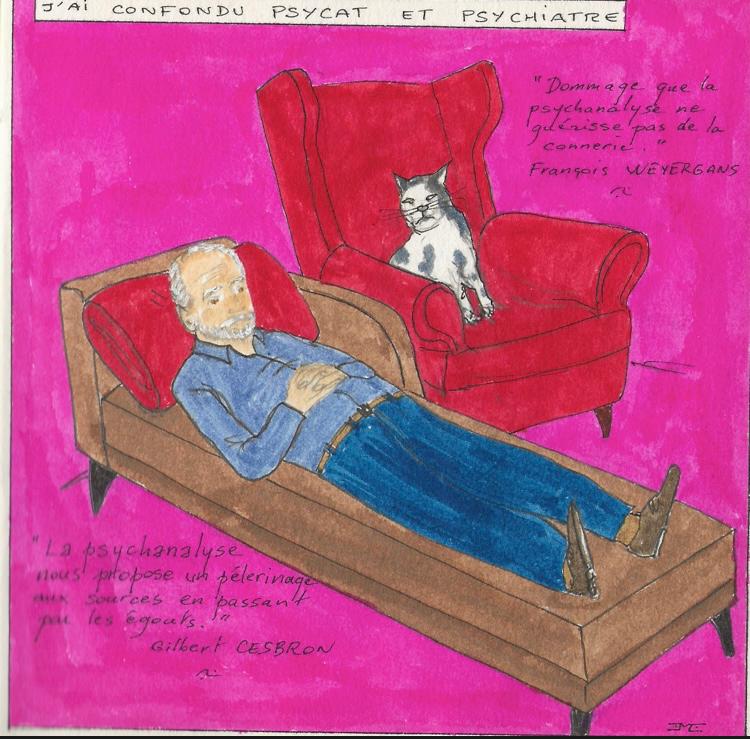 J'Ai CONFONDU PSYCAT ET PSYCHIATRE
"Dommage que la
psychanalyse ne
guérisse pas de la
connerie."
François WEYERGANS
"La psychanalyse
nous propose un pélerinage
aux sources en passant
par les égouts."
Gilbert CESBRON